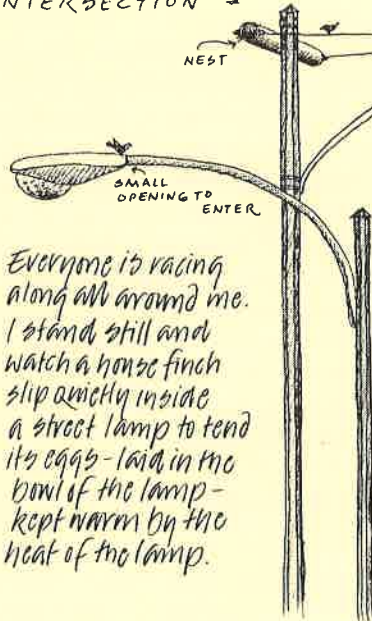 NTERSECTION
NEST
SMALL
OPENING TO
ENTER
Everyone is racing
along all around me.
I stand still and
watch a house finch
slip quietly inside
a street lamp to tend
its eggs - laid in the
bowl of the lamp -
kept warm by the
heat of the lamp.